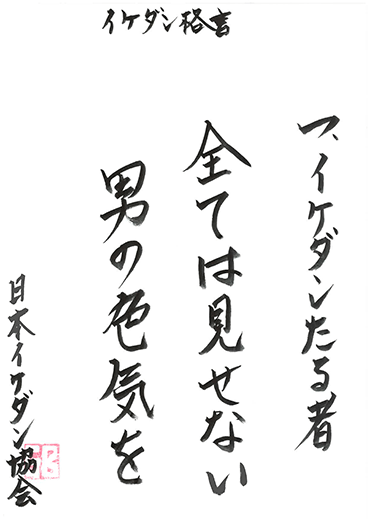 イケダン格言
一、イケダンたる者
全ては見せない
男の色気を
日本イケダン協会